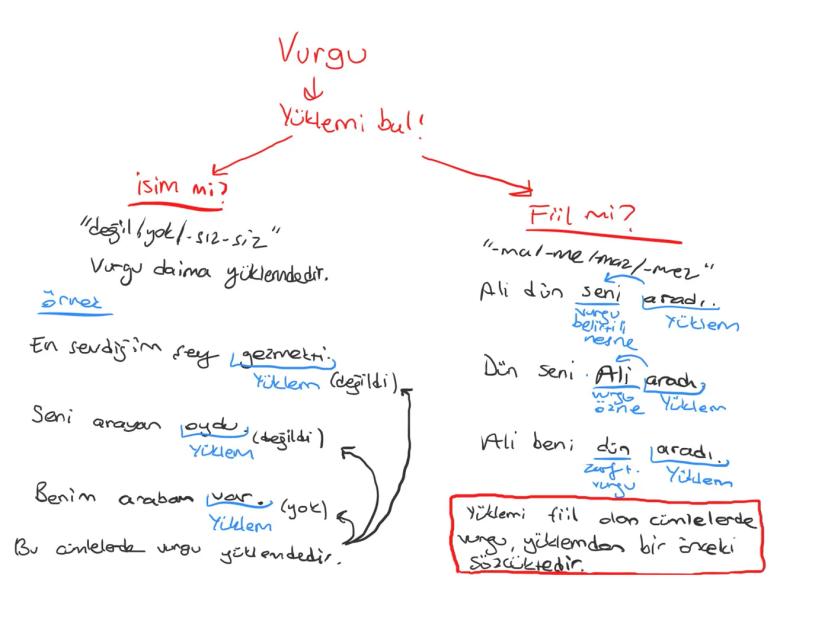 Vurgu
Yüklemi bul!
isim mi?
"değil/yok/-sız-siz"
Vurgu daima yüklemdedir.
örnek
En sevdiğim şey gezmekti.
Yüklem (değildi)
Seni arayan oydu. (değildi)
Yüklem
Benim arabam var. (yok)
Yüklem
Bu cümlelerde vurgu yüklemdedir.
Fiil mi?
"-ma/-me/-maz/-mez"
Ali dün seni aradı.
vurgu Yüklem
belirtili
nesne
Dün seni Ali aradı.
vurgu Yüklem
özne
Ali beni dün aradı.
zarf t. Yüklem
vurgu
Yüklemi fiil olan cümlelerde
vurgu, yüklemden bir önceki
sözcüktedir.